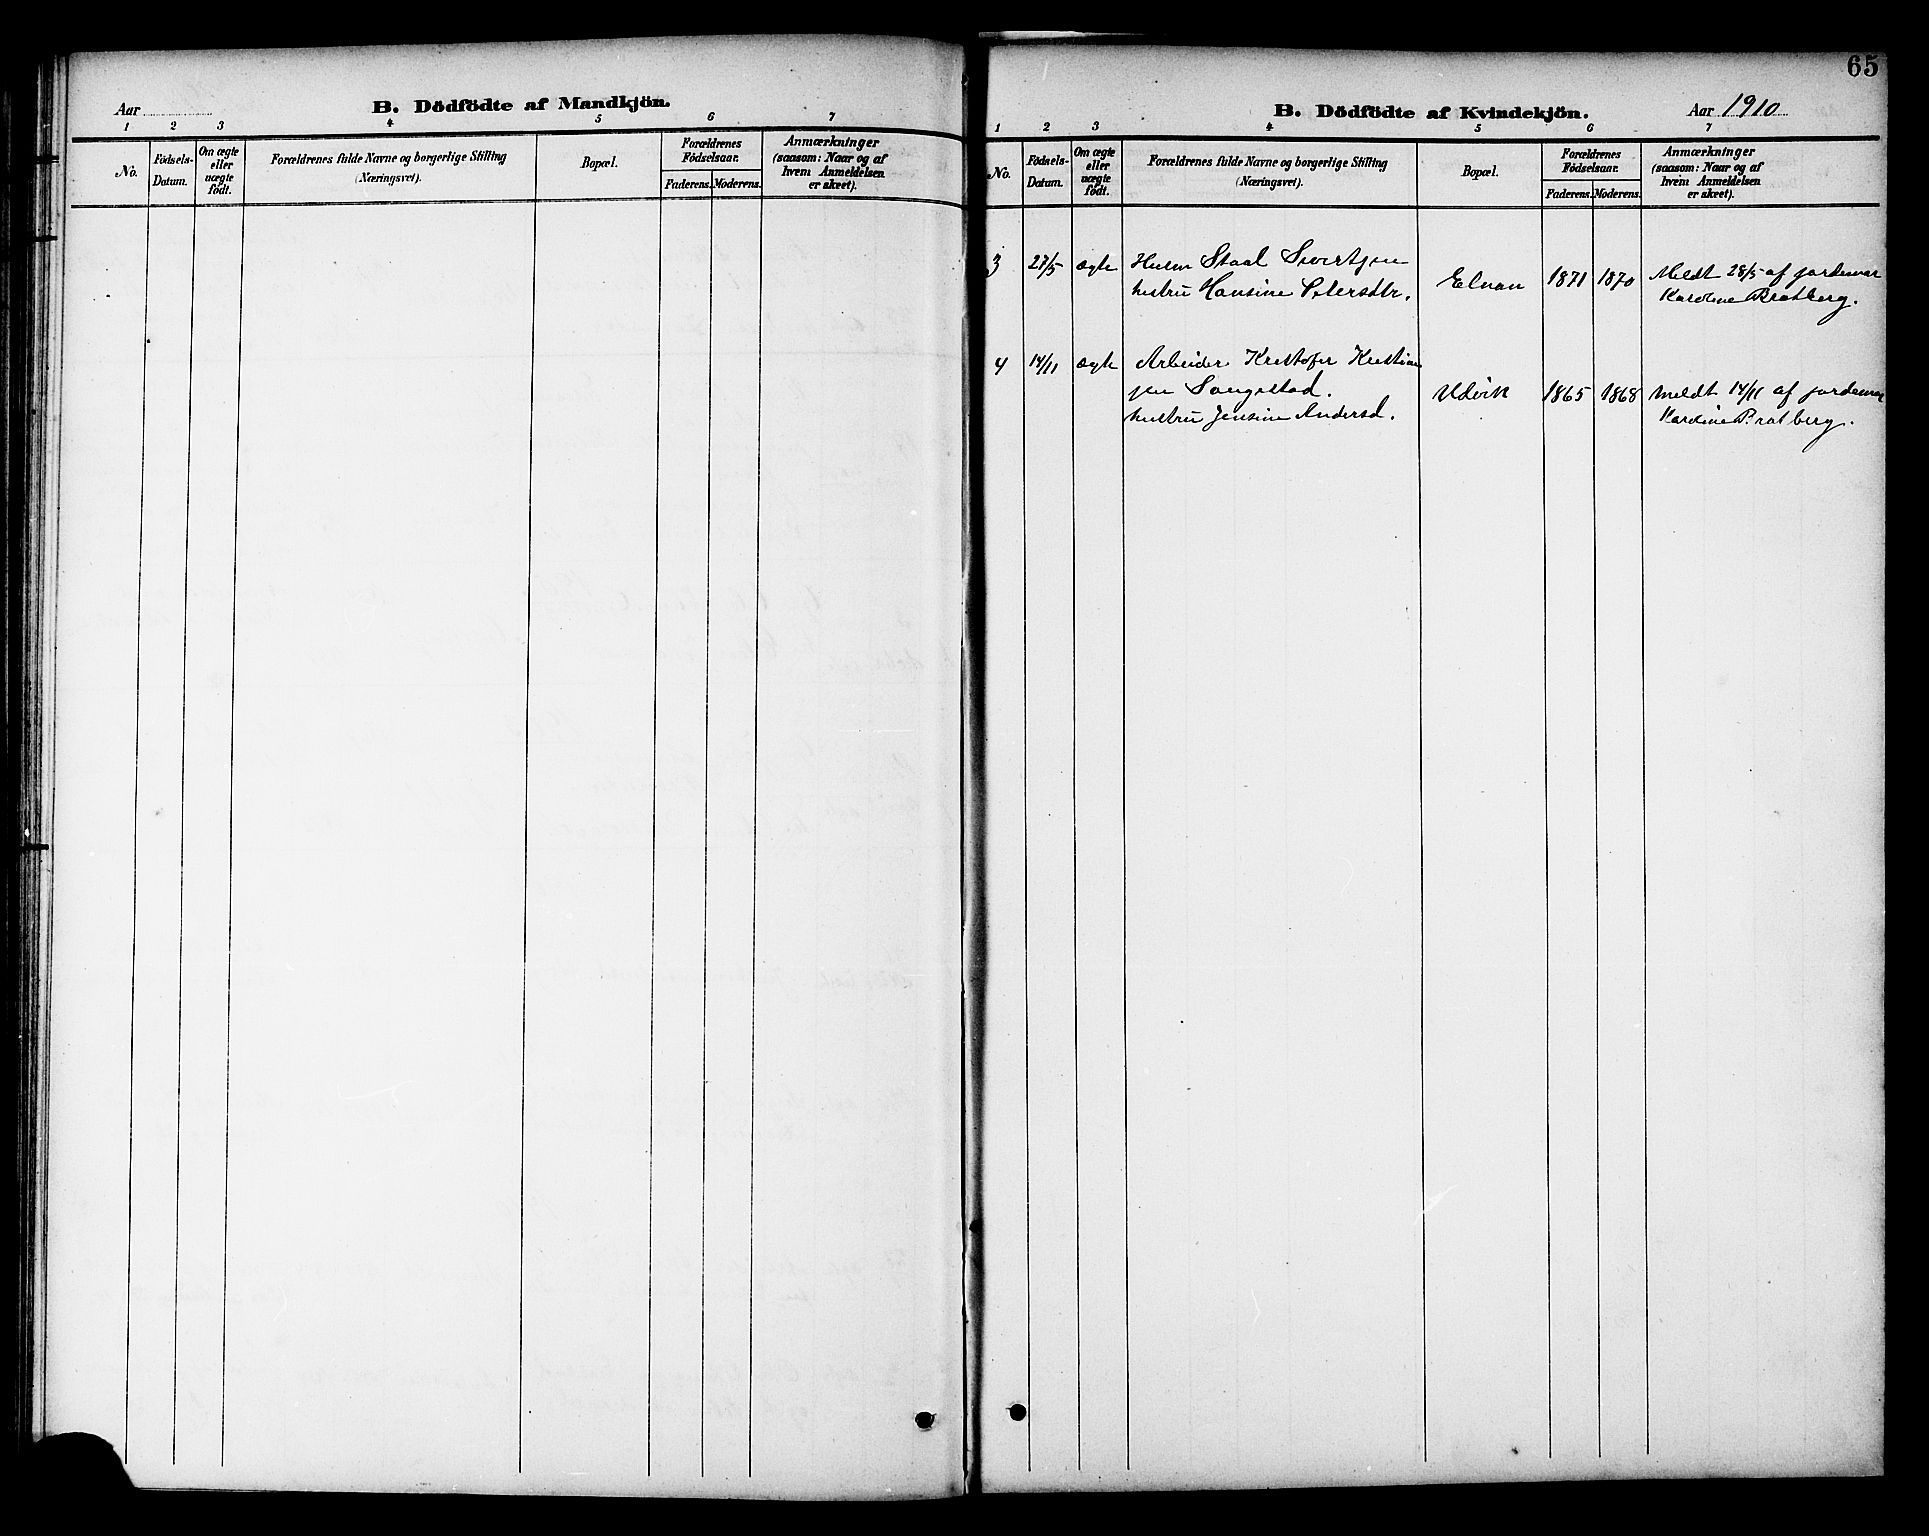 65
Aar
B. Dödfödte af Mandkjön.
1 2 3 4 5 6 7
No.
Födsels-Datum.
Om ægte eller uægte födt.
Forældrenes fulde Navne og borgerlige Stilling
(Næringsvei).
Bopæl.
Forældrenes Födselsaar.
Faderens. Moderens.
Anmærkninger
(saasom: Naar og af
hvem Anmeldelsen
er skeet).
B. Dödfödte af Kvindekjön.
Aar 1910
1 2 3 4 5 6 7
No.
Födsels-Datum.
Om ægte eller uægte födt.
Forældrenes fulde Navne og borgerlige Stilling
(Næringsvei).
Bopæl.
Forældrenes Födselsaar.
Faderens. Moderens.
Anmærkninger
(saasom: Naar og af
hvem Anmeldelsen
er skeet).
3 27/5 ægte Staal Sivertsen
hustru Hansine Petersdtr. Elnan 1871 1870 Meldt 28/5 af jordemor
Karoline Bratberg.
4 14/11 ægte Arbeider Kristofer Kristian
sen Saugestad.
hustru Jensine Andersd. Udvik 1865 1868 meldt 14/11 af jordemor
Karoline Bratberg.